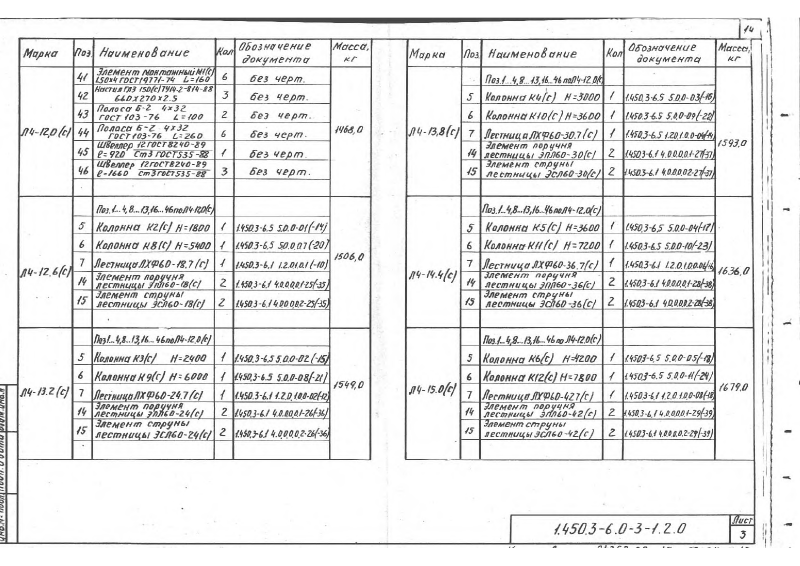 14
Марка Поз. Наименование Кол Обозначение документа Масса, кг
Л4-12,0(с) 1468,0
41 Элемент монтажный М1(с) 150×4 ГОСТ 19771-74 L=160 6 Без черт.
42 Настил ГИЗ 150(с) ТУ14-2-814-88 660×270×2.5 3 Без черт.
43 Полоса Б-2 4×32 ГОСТ 103-76 L=100 2 Без черт.
44 Полоса Б-2 4×32 ГОСТ 103-76 L=260 6 Без черт.
45 Швеллер 12 ГОСТ 8240-89 ℓ=920 Ст3 ГОСТ 535-88 1 Без черт.
46 Швеллер 12 ГОСТ 8240-89 ℓ=1660 Ст3 ГОСТ 535-88 3 Без черт.
Л4-12,6(с) 1506,0
Поз.1...4,8...13,16...46 по Л4-12.0(с)
5 Колонна К2(с) Н=1800 1 1.450.3-6.5 5.0.0-01(-14)
6 Колонна К8(с) Н=5400 1 1.450.3-6.5 5.0.0.07(-20)
7 Лестница ЛХФ60-18,7(с) 1 1.450.3-6.1 1.2.0.1.0.1(-10)
14 Элемент поручня лестницы ЭПЛ60-18(с) 2 1.450.3-6.1 4.0.0.0.1-25(-35)
15 Элемент струны лестницы ЭСЛ60-18(с) 2 1.450.3-6.1 4.0.0.0.2-25(-35)
Л4-13.2(с) 1549,0
Поз.1...4,8...13,16...46 по Л4-12.0(с)
5 Колонна К3(с) Н=2400 1 1.450.3-6.5 5.0.0-02(-15)
6 Колонна К9(с) Н=6000 1 1.450.3-6.5 5.0.0-08(-21)
7 Лестница ЛХФ60-24.7(с) 1
14 Элемент поручня лестницы ЭПЛ60-24(с) 2 1.450.3-6.1 4.0.0.0.1-26(-36)
15 Элемент струны лестницы ЭСЛ60-24(с) 2 1.450.3-6.1 4.0.0.0.2-26(-36)
Марка Поз. Наименование Кол Обозначение документа Масса, кг
Л4-13,8(с) 1593,0
Поз.1...4,8...13,16...46 по Л4-12.0(с)
5 Колонна К4(с) Н=3000 1 1.450.3-6.5 5.0.0-03(-16)
6 Колонна К10(с) Н=3600 1 1.450.3-6.5 5.0.0-09(-22)
7 Лестница ЛХФ60-30.7(с) 1
14 Элемент поручня лестницы ЭПЛ60-30(с) 2 1.450.3-6.1 4.0.0.0.1-27(-37)
15 Элемент струны лестницы ЭСЛ60-30(с) 2 1.450.3-6.1 4.0.0.0.2-27(-37)
Л4-14.4(с) 1636,0
Поз.1...4,8...13,16...46 по Л4-12.0(с)
5 Колонна К5(с) Н=3600 1 1.450.3-6.5 5.0.0-04(-17)
6 Колонна К11(с) Н=7200 1 1.450.3-6.5 5.0.0-10(-23)
7 Лестница ЛХФ60-36,7(с) 1
14 Элемент поручня лестницы ЭПЛ60-36(с) 2 1.450.3-6.1 4.0.0.0.1-28(-38)
15 Элемент струны лестницы ЭСЛ60-36(с) 2 1.450.3-6.1 4.0.0.0.2-28(-38)
Л4-15.0(с) 1679,0
Поз.1...4,8...13,16...46 по Л4-12.0(с)
5 Колонна К6(с) Н=4200 1 1.450.3-6.5 5.0.0-05(-18)
6 Колонна К12(с) Н=7800 1 1.450.3-6.5 5.0.0-11(-24)
7 Лестница ЛХФ60-42.7(с) 1
14 Элемент поручня лестницы ЭПЛ60-42(с) 2 1.450.3-6.1 4.0.0.0.1-29(-39)
15 Элемент струны лестницы ЭСЛ60-42(с) 2 1.450.3-6.1 4.0.0.0.2-29(-39)
1.450.3-6.0-3-1.2.0
Лист
3